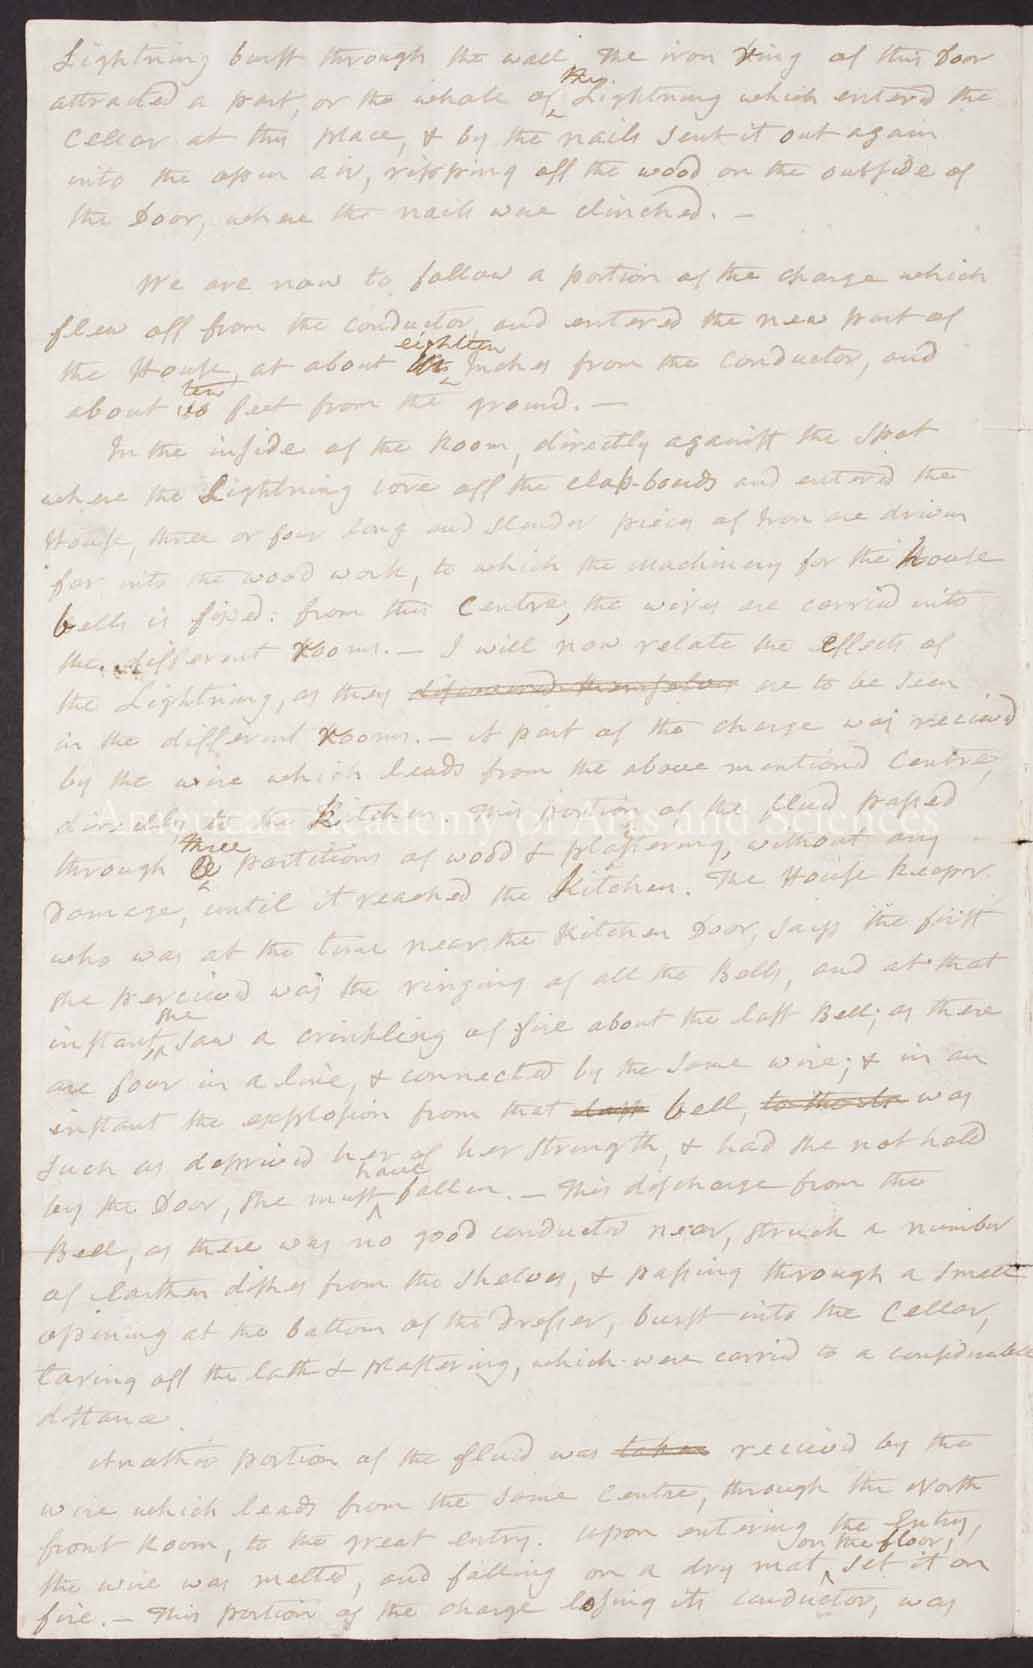 Lightning burst through the wall. The iron Ring of this Door
attracted a part, or the whole of ^the Lightning which entered the
Cellar at this place, & by the nails sent it out again
into the open air, ripping off the wood on the outside of
the Door, where the nails were clinched. —
We are now to follow a portion of the charge which
flew off from the conductor, and entered the new part of
the House, at about eighteen Inches from the Conductor, and
about ten feet from the ground. —
In the inside of the Room, directly against the Spot
where the Lightning tore off the clap-boards and entered the
House, three or four long and slender pieces of Iron are driven
far into the wood work, to which the machinery for the House
bells is fixed: from this Centre, the wires are carried into
the different Rooms. — I will now relate the effects of
the Lightning, as they discovered themselves are to be seen
in the different Rooms. — A part of the charge was received
by the wire which leads from the above mentioned Centre,
directly to the Kitchen. This portion of the fluid passed
through three partitions of wood & plastering, without any
Damage, until it reached the Kitchen. The House Keeper
who was at the time near the Kitchen Door, says the first
she perceived was the ringing of all the Bells, and at that
instant, ^she saw a crinkling of fire about the last Bell; as there
are four in a line, & connected by the same wire; & in an
instant the explosion from that last bell, was
such as deprived her of her strength, & had she not held
by the Door, she must ^have fallen. — This discharge from the
Bell, as there was no good conductor near, struck a number
of Earthen dishes from the shelves, & passing through a small
opening at the bottom of the Dresser, burst into the Cellar,
taring off the lath & plastering, which were carried to a considerable
distance.
Another portion of the fluid was taken received by the
wire which leads from the same Centre, through the North
front Room, to the great Entry. Upon entering the Entry,
the wire was melted, and falling on a dry mat ^on the floor, set it on
fire. — This portion of the charge losing its conductor, was
American Academy of Arts and Sciences